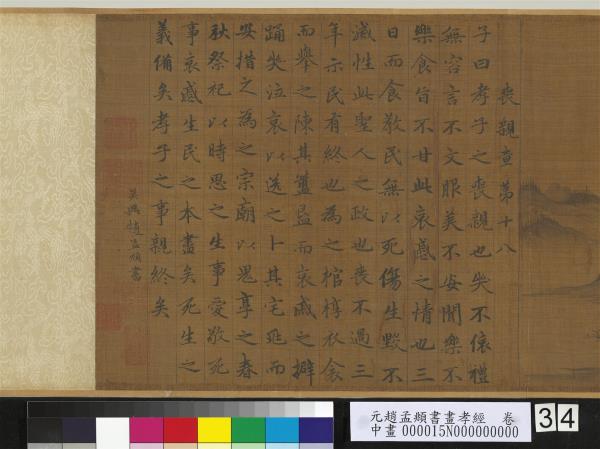 喪親章第十八
子曰孝子之喪親也哭不偯禮
無容言不文服美不安聞樂不
樂食旨不甘此哀慼之情也三
日而食教民無以死傷生毀不
滅性此聖人之政也喪不過三
年示民有終也為之棺椁衣衾
而舉之陳其簠簋而哀戚之擗
踊哭泣哀以送之卜其宅兆而
安措之為之宗廟以鬼享之春
秋祭祀以時思之生事愛敬死
事哀慼生民之本盡矣死生之
義備矣孝子之事親終矣
吳興趙孟頫書
元趙孟頫書畫孝經 卷
中畫 000015N000000000
34